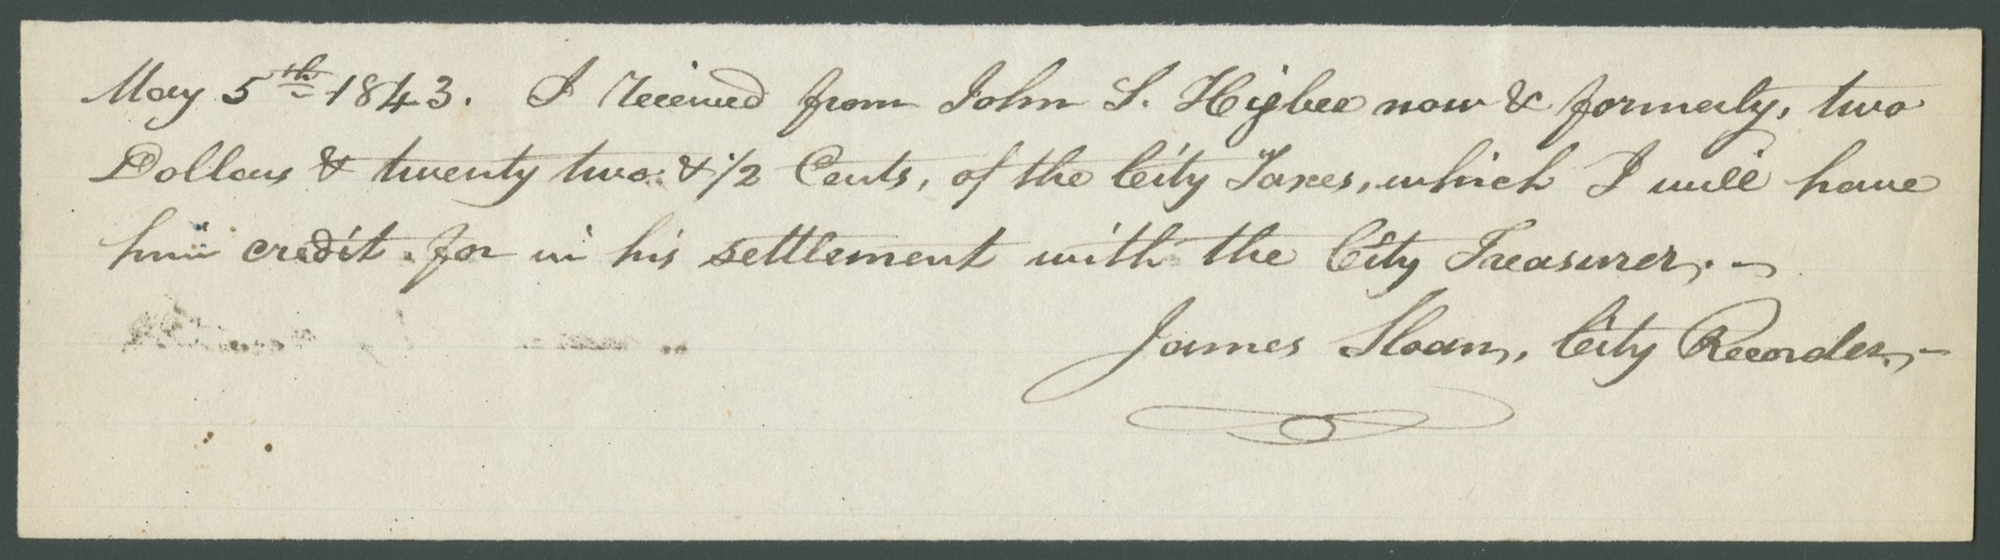 May 5th 1843. I received from John S. Higbee now & formerly, two
Dollars & twenty two & 1/2 Cents, of the City Taxes, which I will have
him credit for in his settlement with the City Treasurer,. –
James Sloan, City Recorder, –